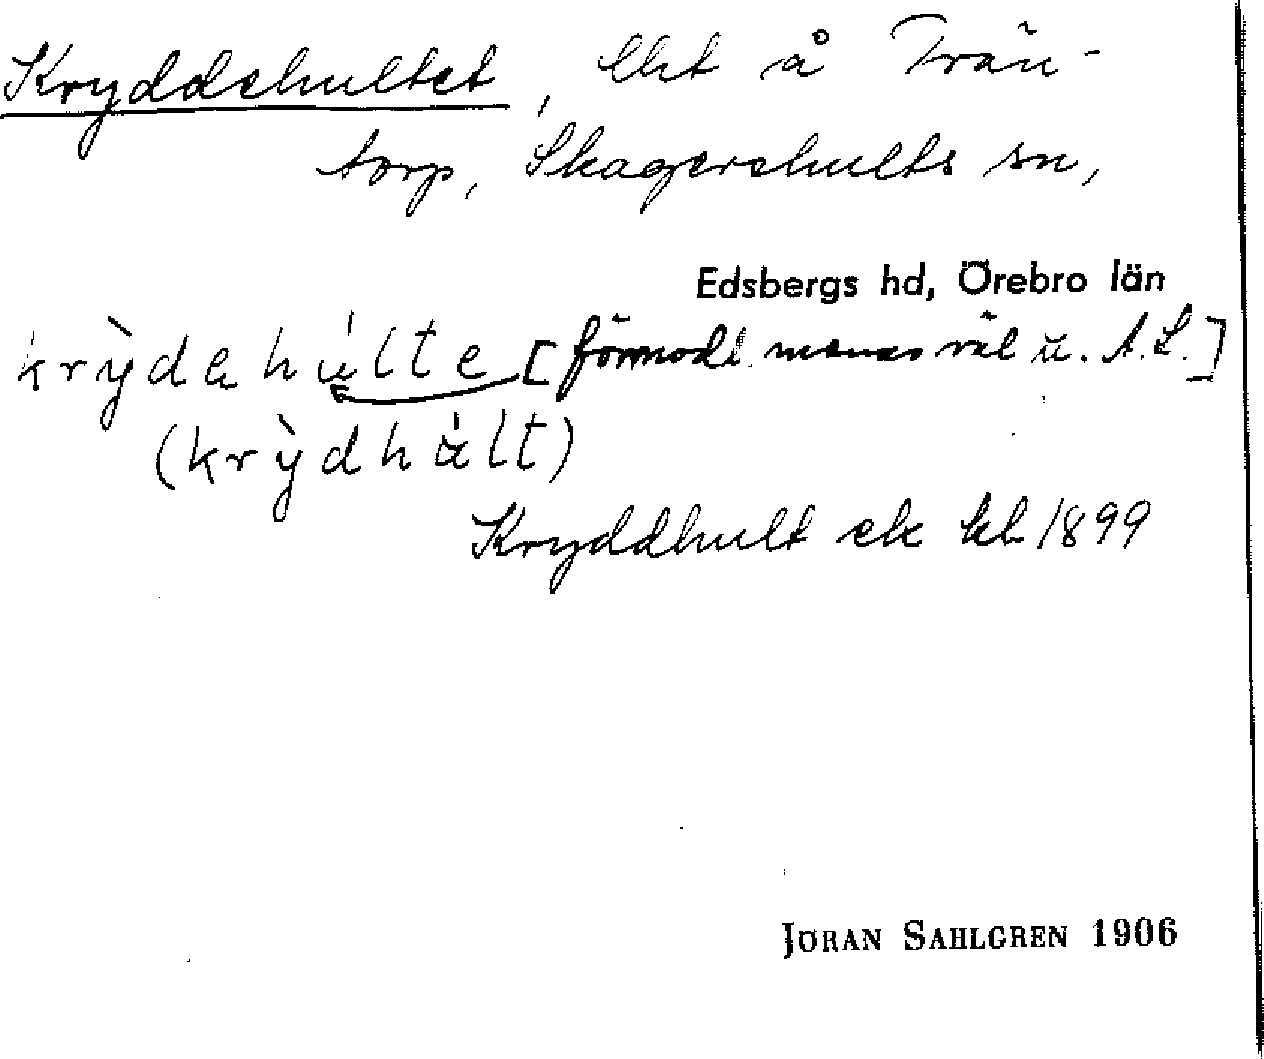 Kryddehultet, lht å Trän-
torp, Skagershults sn,
Edsbergs hd, Örebro län
krỳdehúlte [förmodl. menas väl u. A.L.]
(krỳdhùlt)
Kryddhult ek kb 1899
JÖRAN SAHLGREN 1906